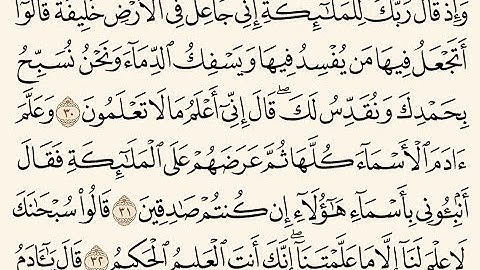 وَإِذْ قَالَ رَبُّكَ لِلْمَلَـٰٓئِكَةِ إِنِّى جَاعِلٌ فِى ٱلْأَرْضِ خَلِيفَةً ۖ قَالُوٓا۟
أَتَجْعَلُ فِيهَا مَن يُفْسِدُ فِيهَا وَيَسْفِكُ ٱلدِّمَآءَ وَنَحْنُ نُسَبِّحُ
بِحَمْدِكَ وَنُقَدِّسُ لَكَ ۖ قَالَ إِنِّىٓ أَعْلَمُ مَا لَا تَعْلَمُونَ ٣٠ وَعَلَّمَ
ءَادَمَ ٱلْأَسْمَآءَ كُلَّهَا ثُمَّ عَرَضَهُمْ عَلَى ٱلْمَلَـٰٓئِكَةِ فَقَالَ
أَنۢبِـُٔونِى بِأَسْمَآءِ هَـٰٓؤُلَآءِ إِن كُنتُمْ صَـٰدِقِينَ ٣١ قَالُوا۟ سُبْحَـٰنَكَ
لَا عِلْمَ لَنَآ إِلَّا مَا عَلَّمْتَنَآ ۖ إِنَّكَ أَنتَ ٱلْعَلِيمُ ٱلْحَكِيمُ ٣٢ قَالَ يَـٰٓـَٔادَمُ